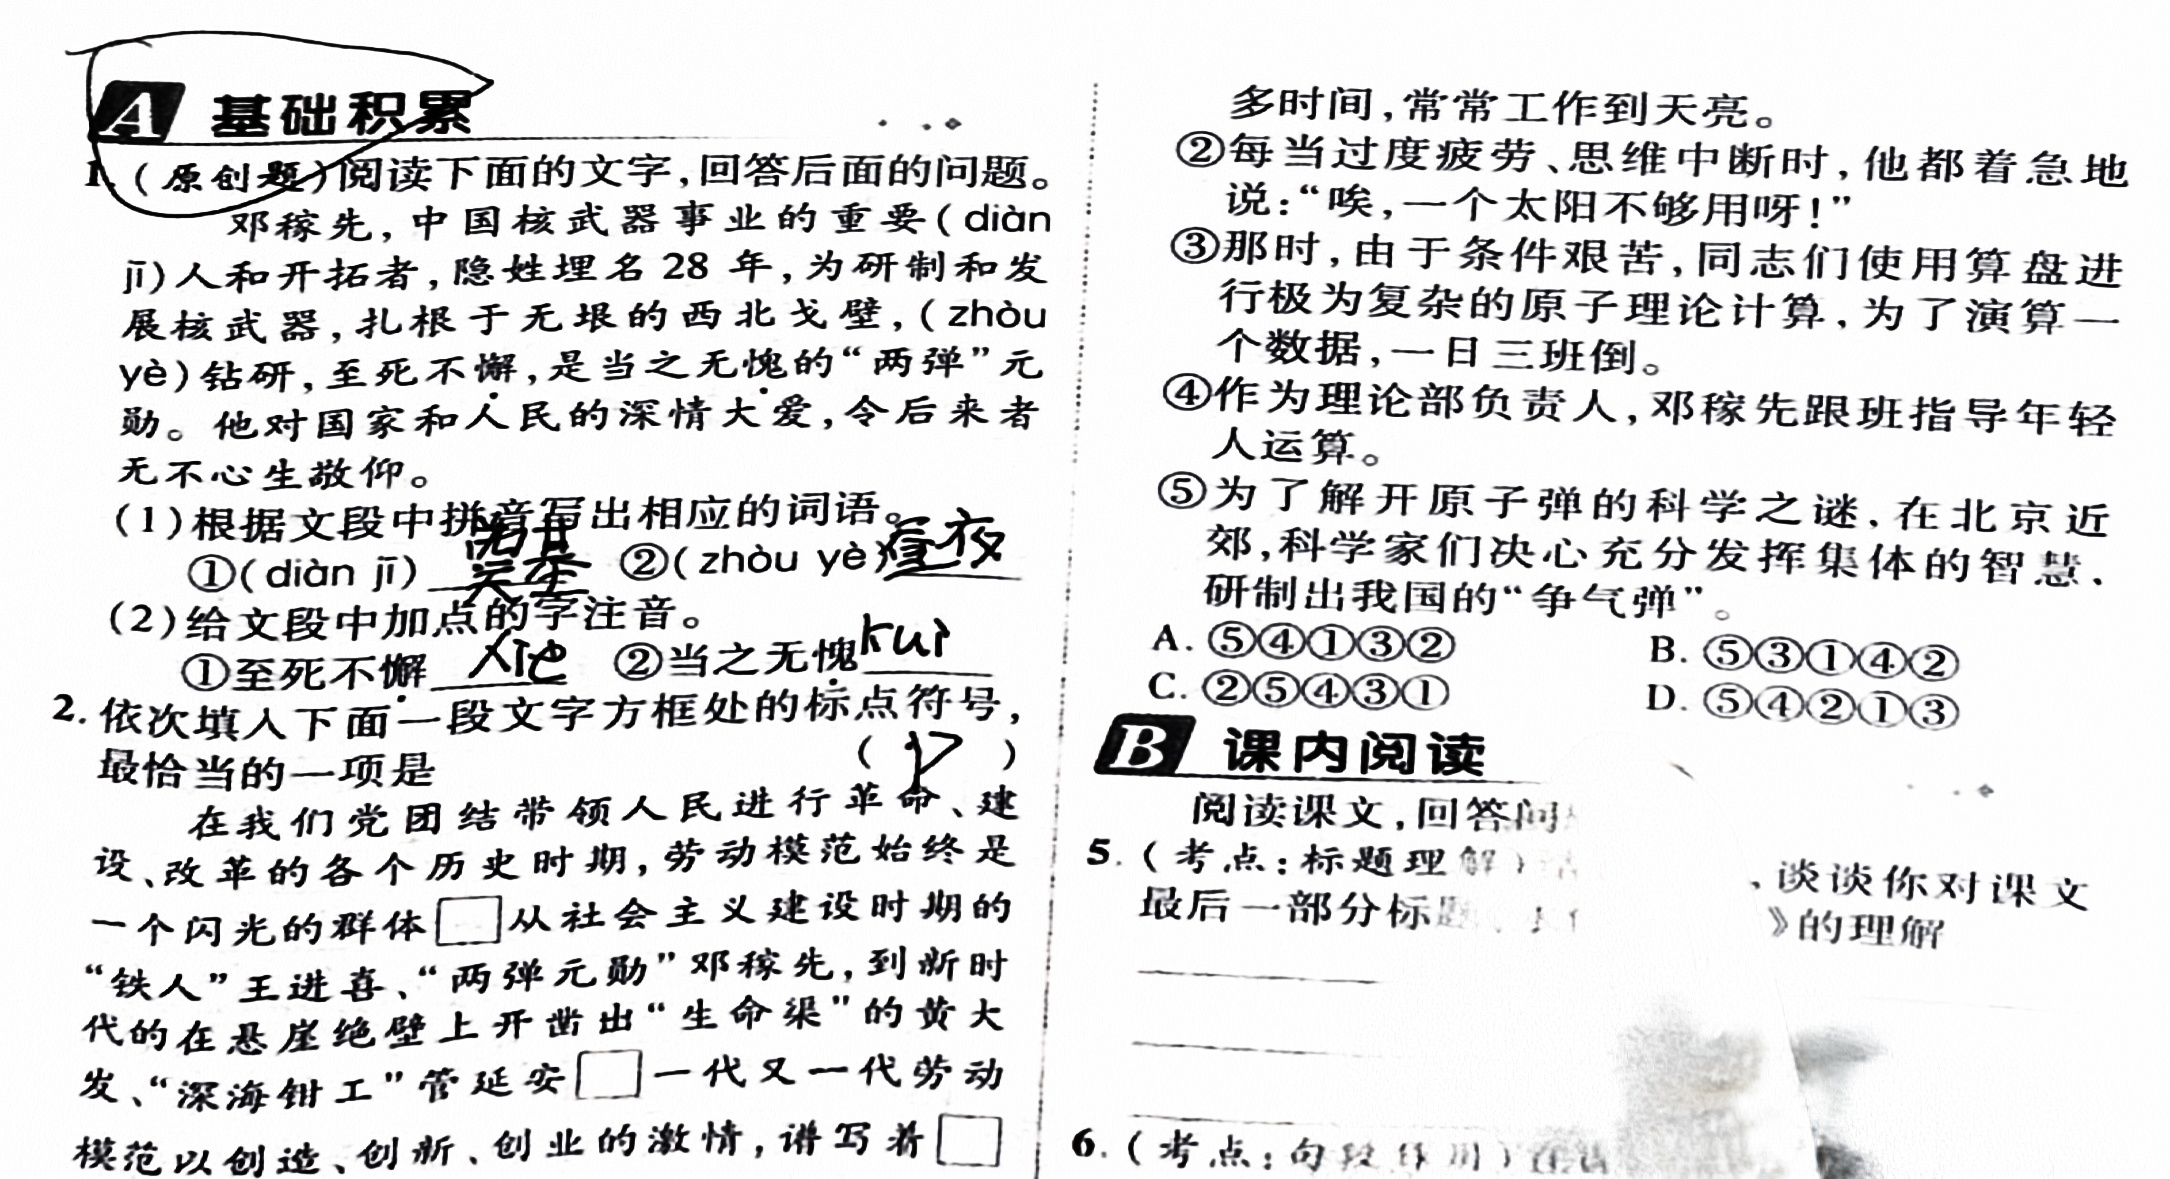 A 基础积累
1.(原创题)阅读下面的文字,回答后面的问题。
邓稼先,中国核武器事业的重要(diàn
jī)人和开拓者,隐姓埋名 28 年,为研制和发
展核武器,扎根于无垠的西北戈壁,(zhòu
yè)钻研,至死不懈,是当之无愧的“两弹”元
勋。他对国家和人民的深情大爱,令后来者
无不心生敬仰。
(1)根据文段中拼音写出相应的词语。
①(diàn jī) ②(zhòu yè)昼夜
(2)给文段中加点的字注音。
①至死不懈 ②当之无愧kuì
2.依次填入下面一段文字方框处的标点符号,
最恰当的一项是 ( )
在我们党团结带领人民进行革命、建
设、改革的各个历史时期,劳动模范始终是
一个闪光的群体□从社会主义建设时期的
“铁人”王进喜、“两弹元勋”邓稼先,到新时
代的在悬崖绝壁上开凿出“生命渠”的黄大
发、“深海钳工”管延安□一代又一代劳动
模范以创造、创新、创业的激情,谱写着□
多时间,常常工作到天亮。
②每当过度疲劳、思维中断时,他都着急地
说:“唉,一个太阳不够用呀!”
③那时,由于条件艰苦,同志们使用算盘进
行极为复杂的原子理论计算,为了演算一
个数据,一日三班倒。
④作为理论部负责人,邓稼先跟班指导年轻
人运算。
⑤为了解开原子弹的科学之谜,在北京近
郊,科学家们决心充分发挥集体的智慧,
研制出我国的“争气弹”。
A.⑤④①③② B.⑤③①④②
C.②⑤④③① D.⑤④②①③
B 课内阅读
阅读课文,回答问
5.(考点:标题理解) 、谈谈你对课文
最后一部分标题 》的理解
6.(考点:句段作用)